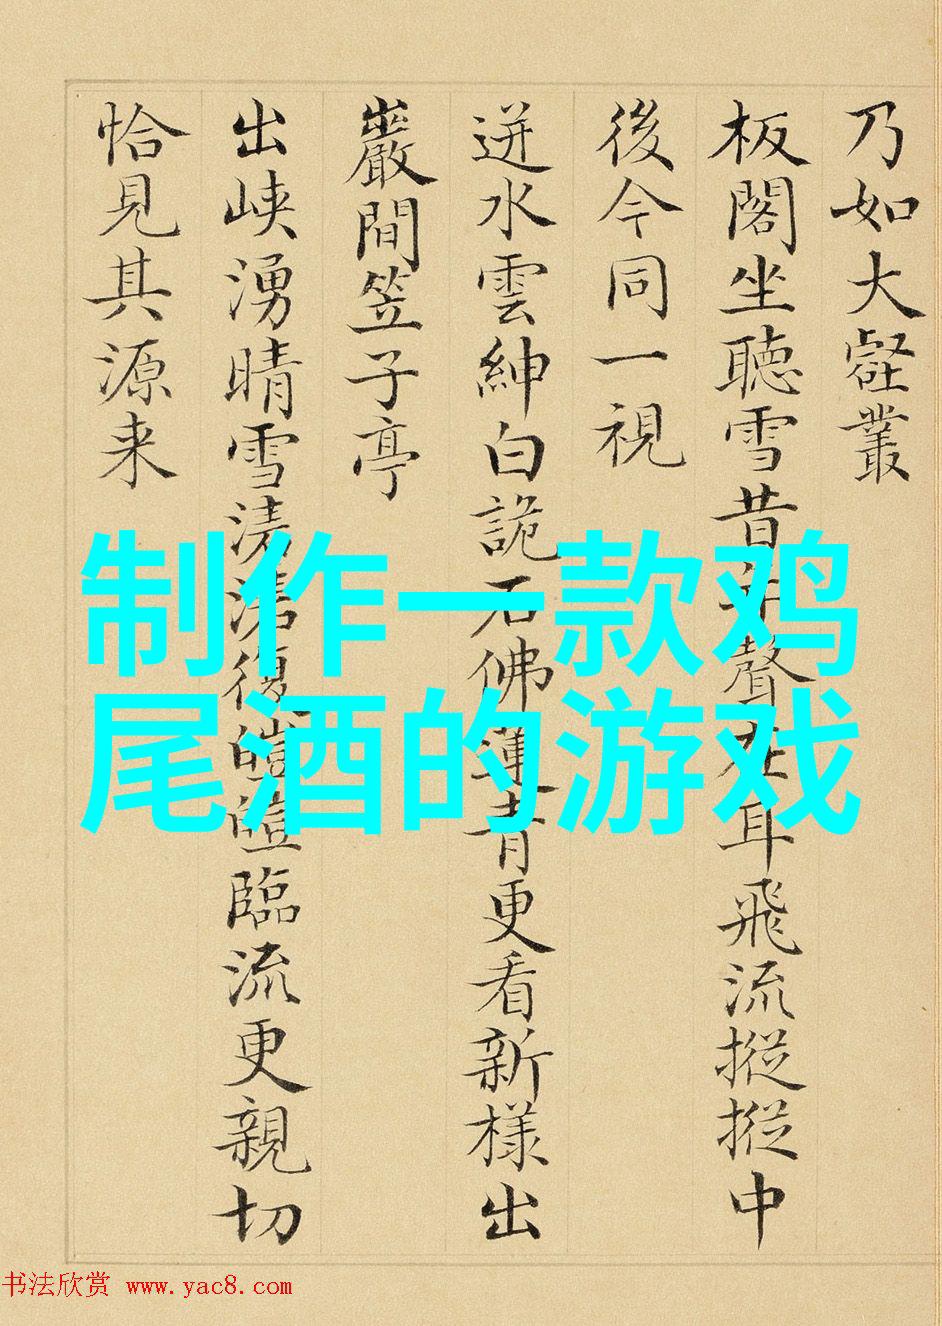 乃如大壑叢
板閣坐聽雪昔年聲在耳飛流摐摐中
後今同一視
迸水雲紳白詭石佛蓮青更看新樣出
巖間笠子亭
出峽湧晴雪復皚皚臨流更親切
恰見其源来
制作一款鸡
尾酒的游戏
书法欣赏 www.yac8.com